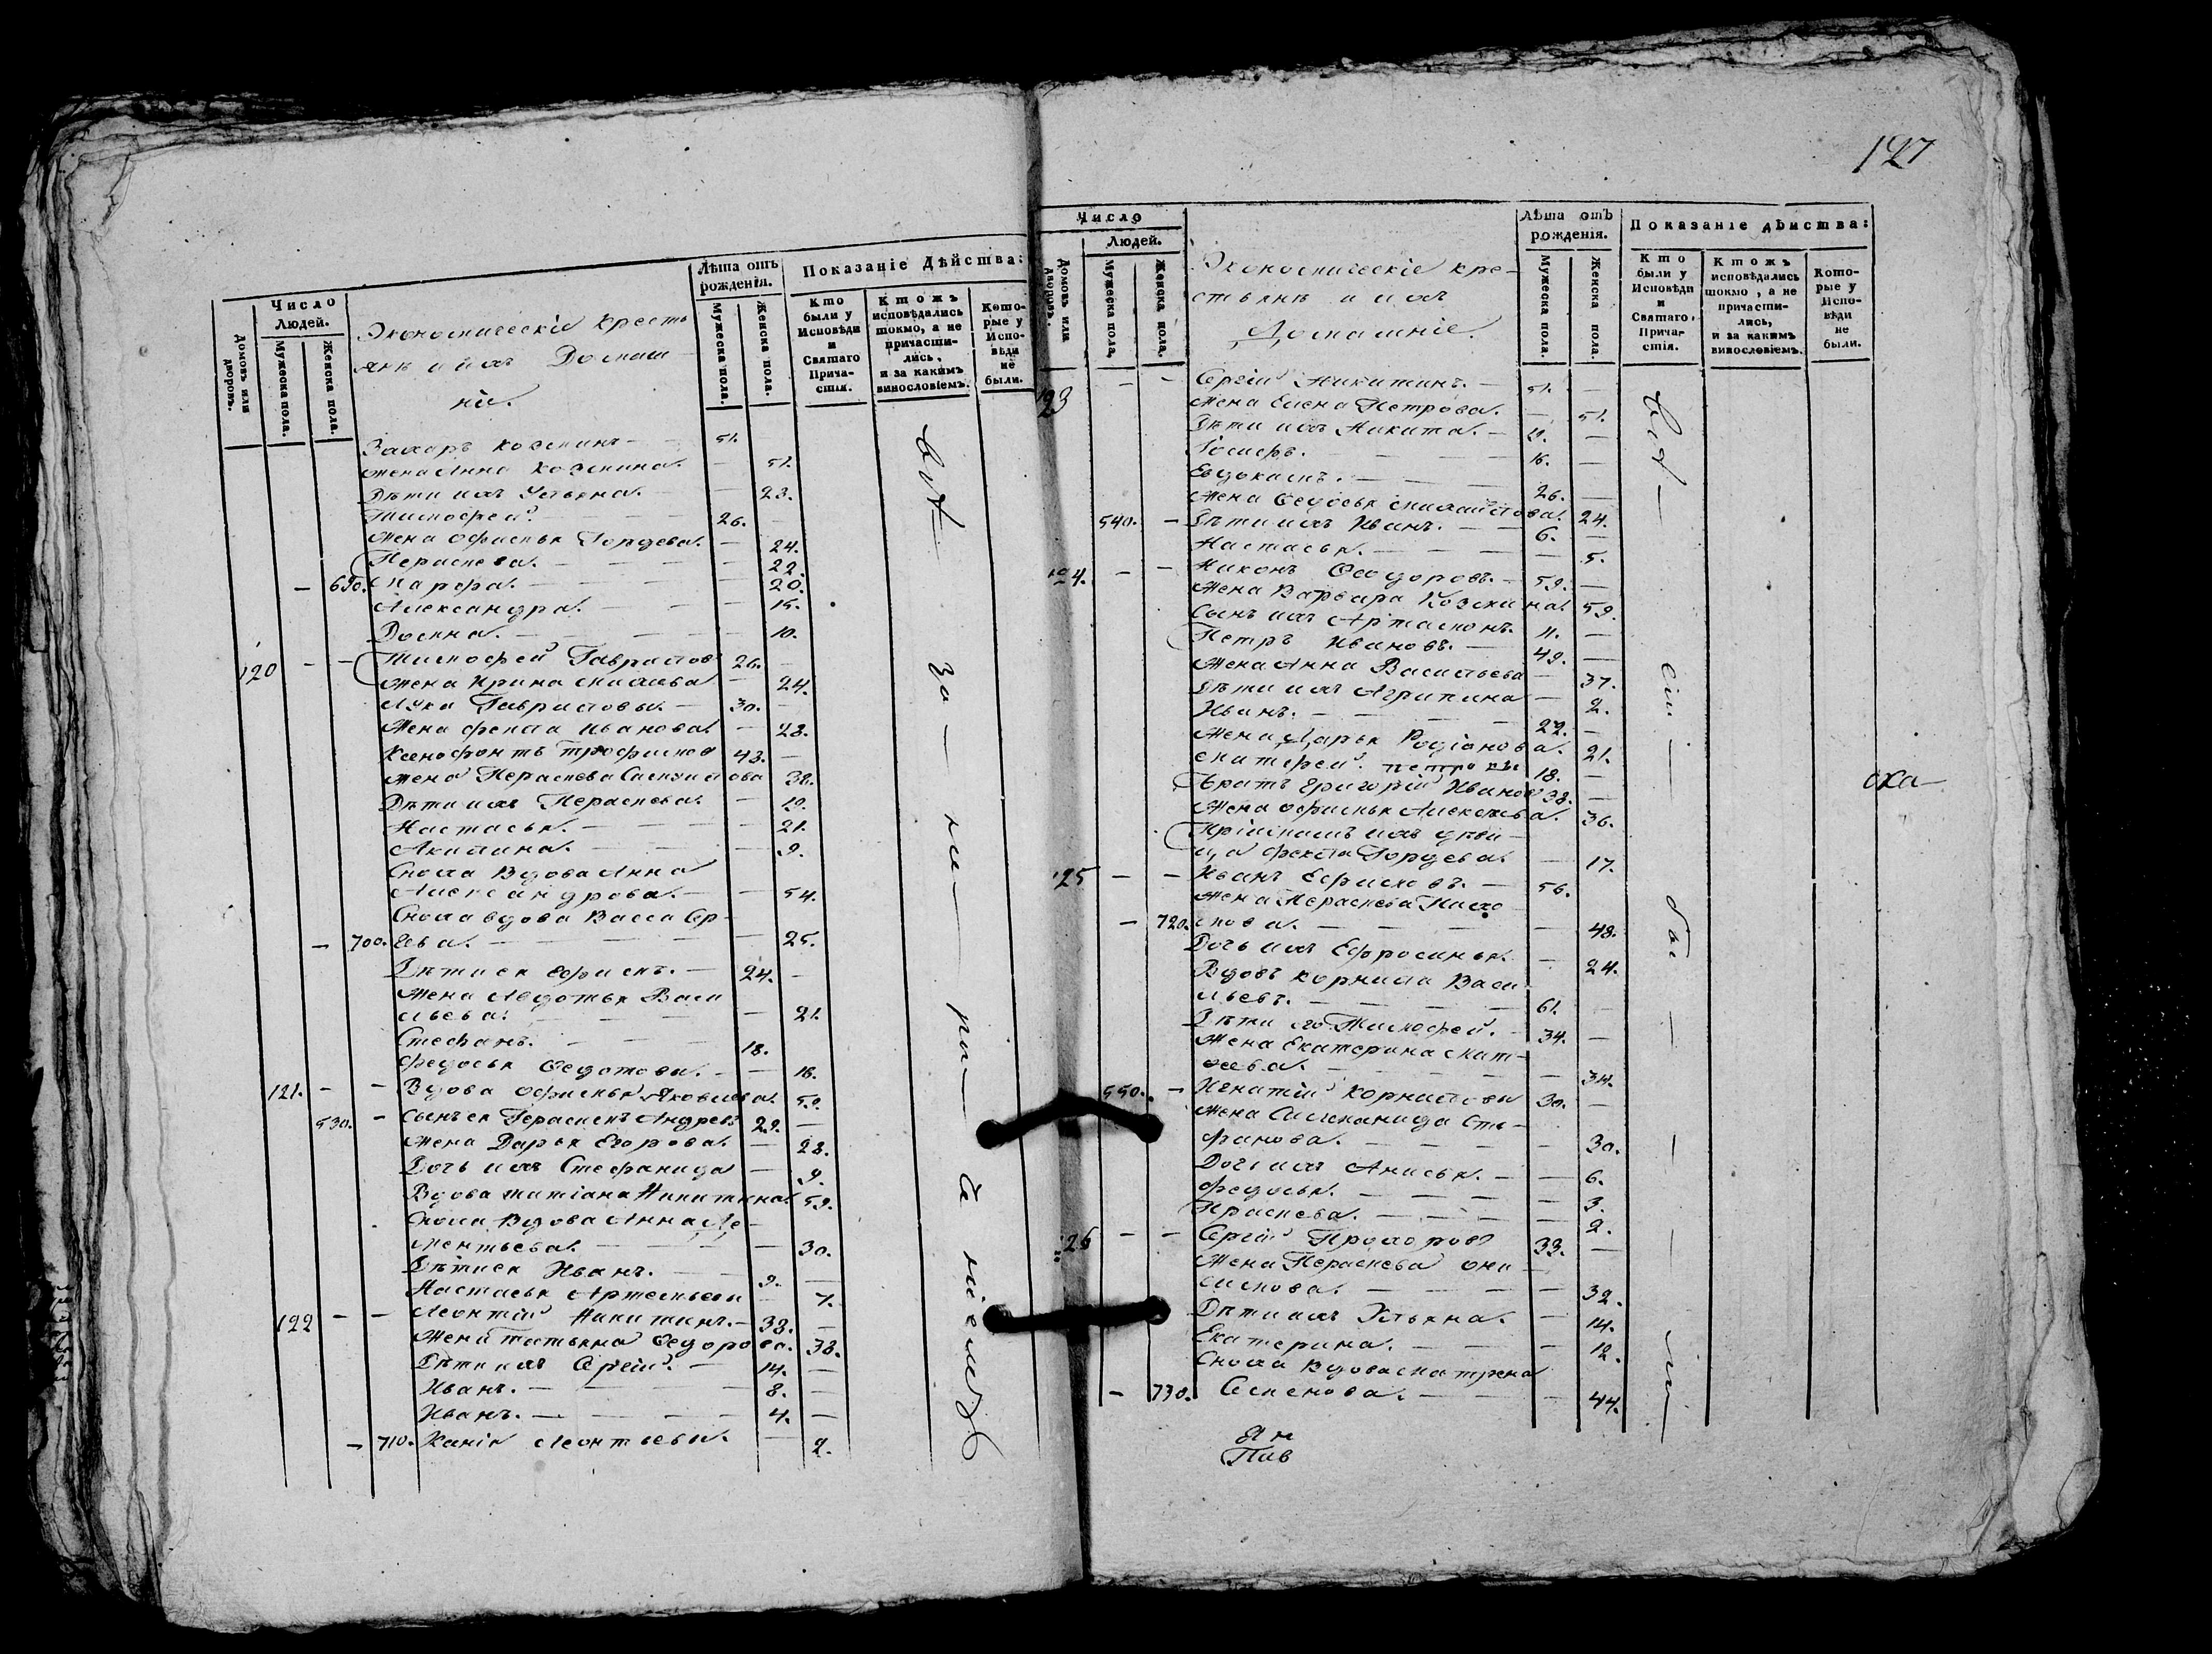 Число
Людей.
Домовъ или дворовъ.
Мужеска пола.
Женска пола.
Экономическіе кресть
яне и ихъ Домаш
ніе.
Лѣта отъ
рожденія.
Мужеска пола.
Женска пола.
Показаніе Дѣйства:
Кто
были у
Исповѣди
и
Святаго
Прича-
стія.
Ктожъ
исповѣдались
токмо, а не
причасти-
лись,
и за какимъ
винословіемъ.
Кото-
рые у
Испо-
вѣди
не
были.
Захаръ Козминъ — 51.
Жена Анна Козмина. — 51.
Дѣти ихъ Ульяна. — 23.
Тимофей. — 26. —
Жена Офимья Гордева. — 24.
Параскева. — 22.
— 690. Марфа. — 20.
Александра. — 15.
Домна. — 10.
120 — — Тимофей Гаврилов 26. —
Жена Ирина — 24.
Лука Гавриловъ. — 30. —
Жена Фекла Иванова — 28.
Ксенофонтъ Трофимов 43. —
Жена Параскева 38.
Дѣти ихъ Параскева. —
Настасья. — 21.
Акилина. — 9.
Сноха Вдова Анна
Александрова. — 54.
Сноха вдова Васса Сер-
— 700. геева. — 25.
Дѣти ея Ефимъ. — 24. —
Жена Авдотья Васи
льева. — 21.
Стефанъ. — 18.
Федосья Федотова. — 18.
121. — — Вдова Офимья Яковлева. 59.
530. — Сынъ ея Герасимъ Андреев 29. —
Жена Дарья Егорова. — 28.
Дочь ихъ Стефанида — 9.
Вдова Татіана Никитина. 59.
Сноха Вдова Анна Де-
ментьева. — 30.
Дѣти ея Иванъ. — 9. —
Настасья Артемьева — 7.
122 — — Леонтій Никитинъ. — 38. —
Жена Татьяна Федорова. 38.
Дѣти ихъ Сергій. — 14. —
Иванъ. — 8. —
Иванъ. — 4. —
— 710. Ксенія Леонтьева. — 2.
127
Число
Людей.
Домовъ или дворовъ.
Мужеска пола.
Женска пола.
Экономическіе кре-
стьяне и ихъ
Домашніе.
Лѣта отъ
рожденія.
Мужеска пола.
Женска пола.
Показаніе дѣиства:
Кто
были у
Исповѣди
и
Святаго
Прича-
стія.
Ктожъ
исповѣдались
токмо, а не
причасти-
лись,
и за какимъ
винословіемъ.
Кото-
рые у
Испо-
вѣди
не
были.
123 — — Сергій Никитинъ. — 51. —
Жена Елена Петрова. — 51.
Дѣти ихъ Никита. —
Іосифъ. — 16. —
Евдокимъ. — 26. —
Жена Федосья 24.
540. — Дѣти ихъ Иванъ. — 6. —
Настасья. — 5.
124. — — Никонъ Феодоровъ. — 59. —
Жена Варвара Козмина. 59.
Сынъ ихъ Артамонъ. 11. —
Петръ Ивановъ. — 49. —
Жена Анна Васильева — 37.
Дѣти ихъ Агрипина — 2.
Иванъ. — 22. —
Жена Дарья Родіонова. 21.
Матфей. 18. —
Братъ Григорій Иванов 38. —
Жена Офимья Алексѣева. 36.
Пріимышъ ихъ дѣви-
ца Фекла Гордева. — 17.
125 — — Иванъ Ефимовъ. — 56.
Жена Параскева
— 720. — 48.
Дочь ихъ Ефросинья. — 24.
Вдовъ Корнила Васи
льевъ. — 61. —
Дѣти его Тимофей. — 34. —
Жена Екатерина Мат-
ѳеева. — 34.
550. — Игнатій Корниловъ 30. —
Жена Сте-
фанова. — 30.
Дочь ихъ Анисья. — 6.
Федосья. — 3.
Праскева. — 2.
126 — — Сергій Прохоров 33. —
Жена Параскева Они
симова. — 32.
Дѣти ихъ Ульяна. — 14.
Екатерина. — 12.
Сноха Вдова Матрена
— 730. Семенова. — 44.